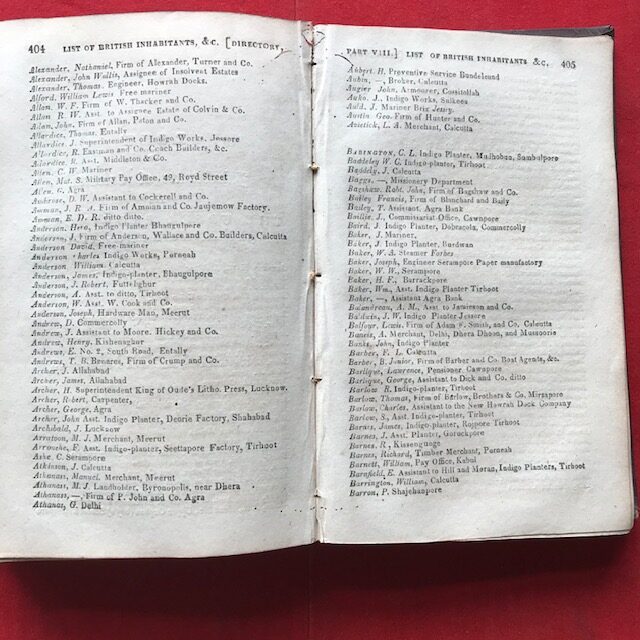 404 LIST OF BRITISH INHABITANTS, &C. [DIRECTORY,
Alexander, Nathaniel, Firm of Alexander, Turner and Co.
Alexander, John Wallis, Assignee of Insolvent Estates
Alexander, Thomas, Engineer, Howrah Docks.
Alford, William Lewis Free mariner
Allan, W. F. Firm of W. Thacker and Co.
Allan R. W. Asst. to Assignee Estate of Colvin & Co.
Adam, John, Firm of Allan, Paton and Co.
Allardice, G. Thomas, Entally
Allardice, J. Superintendent of Indigo Works, Jessore
Allardice, R. Eastman and Co. Coach Builders, &c.
Allardice, R. Asst. Middleton & Co.
Allen, C. W. Mariner
Allen, Mat. S. Military Pay Office, 49, Royd Street
Allen, G. Agra
Ambrose, D. W. Assistant to Cockerell and Co.
Amman, J. R. A. Firm of Amman and Co. Jaujemow Factory.
Amman, E. D. R. ditto ditto.
Anderson, Hero, Indigo Planter Bhaugulpore
Anderson, J. Firm of Anderson, Wallace and Co. Builders, Calcutta
Anderson David, Free mariner
Anderson harles Indigo Works, Porneah
Anderson William Calcutta
Anderson, James, Indigo-planter, Bhaugulpore
Anderson, J. Robert, Futtehghur
Anderson, A. Asst. to ditto, Tirhoot
Anderson, W. Asst. W. Cook and Co.
Anderson, Joseph, Hardware Man, Meerut
Andrew, D. Commercolly
Andrew, J. Assistant to Moore. Hickey and Co.
Andrew, Henry, Kishenaghur
Andrews, E. No. 2, South Road, Entally
Andrews, T. R. Broares, Firm of Crump and Co.
Archer, J. Allahabad
Archer, James, Allahabad
Archer, H. Superintendent King of Oude's Litho. Press, Lucknow.
Archer, Robert, Carpenter,
Archer, George, Agra
Archer, John Asst. Indigo Planter, Deorie Factory, Shahabad
Archibald, J. Lucknow
Arratoon, M. J. Merchant, Meerut
Arrowche, F. Asst. Indigo-planter, Seettapore Factory, Tirhoot
Ashe, C. Serampore
Atkinson, J. Calcutta
Athanass, Manuel, Merchant, Meerut
Athanass, M. J. Landholder, Byronopolis, near Dhera
Athanass, —, Firm of P. John and Co. Agra
Athanas, G. Delhi
PART VIII.] LIST OF BRITISH INHABITANTS &C. 405
Aubert, H. Preventive Service Bundelcund
Aubin, —, Broker, Calcutta
Augier John, Armourer, Cossitollah
Auko, J., Indigo Works, Sulkea
Auld, J. Mariner Brig Jessy.
Austin Geo. Firm of Hunter and Co.
Avistick, L. A. Merchant, Calcutta
BABINGTON, C. L. Indigo Planter, Mudhoban, Sambulpore
Baddeley W C. Indigo-planter, Tirhoot
Baddely, J. Calcutta
Baggs, —, Missionery Department
Bagshaw, Robt. John, Firm of Bagshaw and Co.
Bailey Francis, Firm of Blanchard and Baily
Bailey, T. Assistant, Agra Bank
Baillie, J., Commissariat Office, Cawnpore
Baird, J. Indigo Planter, Dobracola, Commercolly
Baker, J. Mariner,
Baker, J Indigo Planter, Burdwan
Baker, W. A. Steamer Forbes
Baker, Joseph, Engineer Serampore Paper manufactory
Baker, W. W. Serampore
Baker, H. F., Barrackpore
Baker, Wm., Asst. Indigo Planter Tirhoot
Baker, —, Assistant Agra Bank
Balandreau, A. M., Asst to Jamieson and Co.
Baldwin, J. W. Indigo Planter Jessore
Balfour, Lewis, Firm of Adam F. Smith, and Co. Calcutta
Bancis, A. Merchant, Delhi, Dhera Dhoon, and Mussoorie
Banks, John, Indigo Planter
Barber, F. L. Calcutta
Barber, B. Junior, Firm of Barber and Co. Boat Agents, &c.
Barllque, Lawrence, Pensioner, Cawnpore
Barlique, George, Assistant to Dick and Co. ditto
Barlow R. Indigo Planter, Tirhoot
Barlow, Thomas, Firm of Barlow, Brothers & Co. Mirzapore
Barlow, Charles, Assistant to the New Howrah Dock Company
Barlow, S., Asst Indigo-planter, Tirhoot
Barnes, James, Indigo-planter, Rojpore Tirhoot
Barnes, J. Asst. Planter, Goruckpore
Barnes, R., Kissengunge
Barnes, Richard, Timber Merchant, Porneah
Barnett, William, Pay Office, Kabul
Barnfield, E. Assistant to Hill and Moran, Indigo Planters, Tirhoot
Barrington, William, Calcutta
Barron, P. Shajehanpore